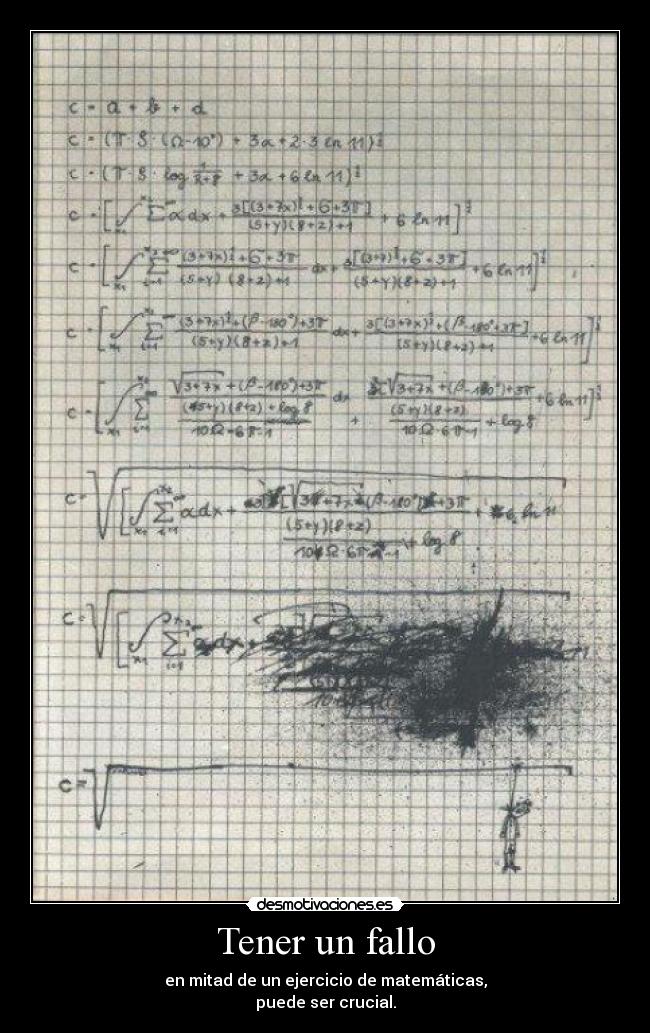 c = a + b + d
c = (π · ς · (Ω-10°) + 3α + 2·3 ln 11)^½
c = (π · ς · log 1/(2+8) + 3α + 6 ln 11)^½
c = [∫x₁^x₂ Σ^∞ α dx + 3[(3+7x)^½ + 6 + 3π] / (5+y)(8+z)+1 + 6 ln 11]^½
c = [∫x₁^x₂ Σi=1^∞ (3+7x)^½ + 6 + 3π / (5+y)(8+z)+1 dx + 3[(3+7)^½ + 6 + 3π] / (5+y)(8+z)+1 + 6 ln 11]^½
c = [∫x₁^x₂ Σi=1^∞ (3+7x)^½ + (β-180°)+3π / (5+y)(8+z)+1 dx + 3[(3+7x)^½ + (β-180°+3π] / (5+y)(8+z)+1 + 6 ln 11]^½
c = [∫x₁^x₂ Σi=1^∞ √3+7x + (β-180°)+3π / (5+y)(8+z) + log 8 / 10Ω-6π-1 dx + √3+7x + (β-180°)+3π / (5+y)(8+z) / 10Ω·6π-1 + log 8 + 6 ln 11]^½
c = √[∫x₁^x₂ Σi=1^∞ α dx + (β-180°) + 3π / (5+y)(8+z) / 10 Ω·6π-1 + log 8 + ln 11
c = √[∫x₁^x₂ Σi=1^∞ dx +
c = √
desmotivaciones.es
Tener un fallo
en mitad de un ejercicio de matemáticas,
puede ser crucial.